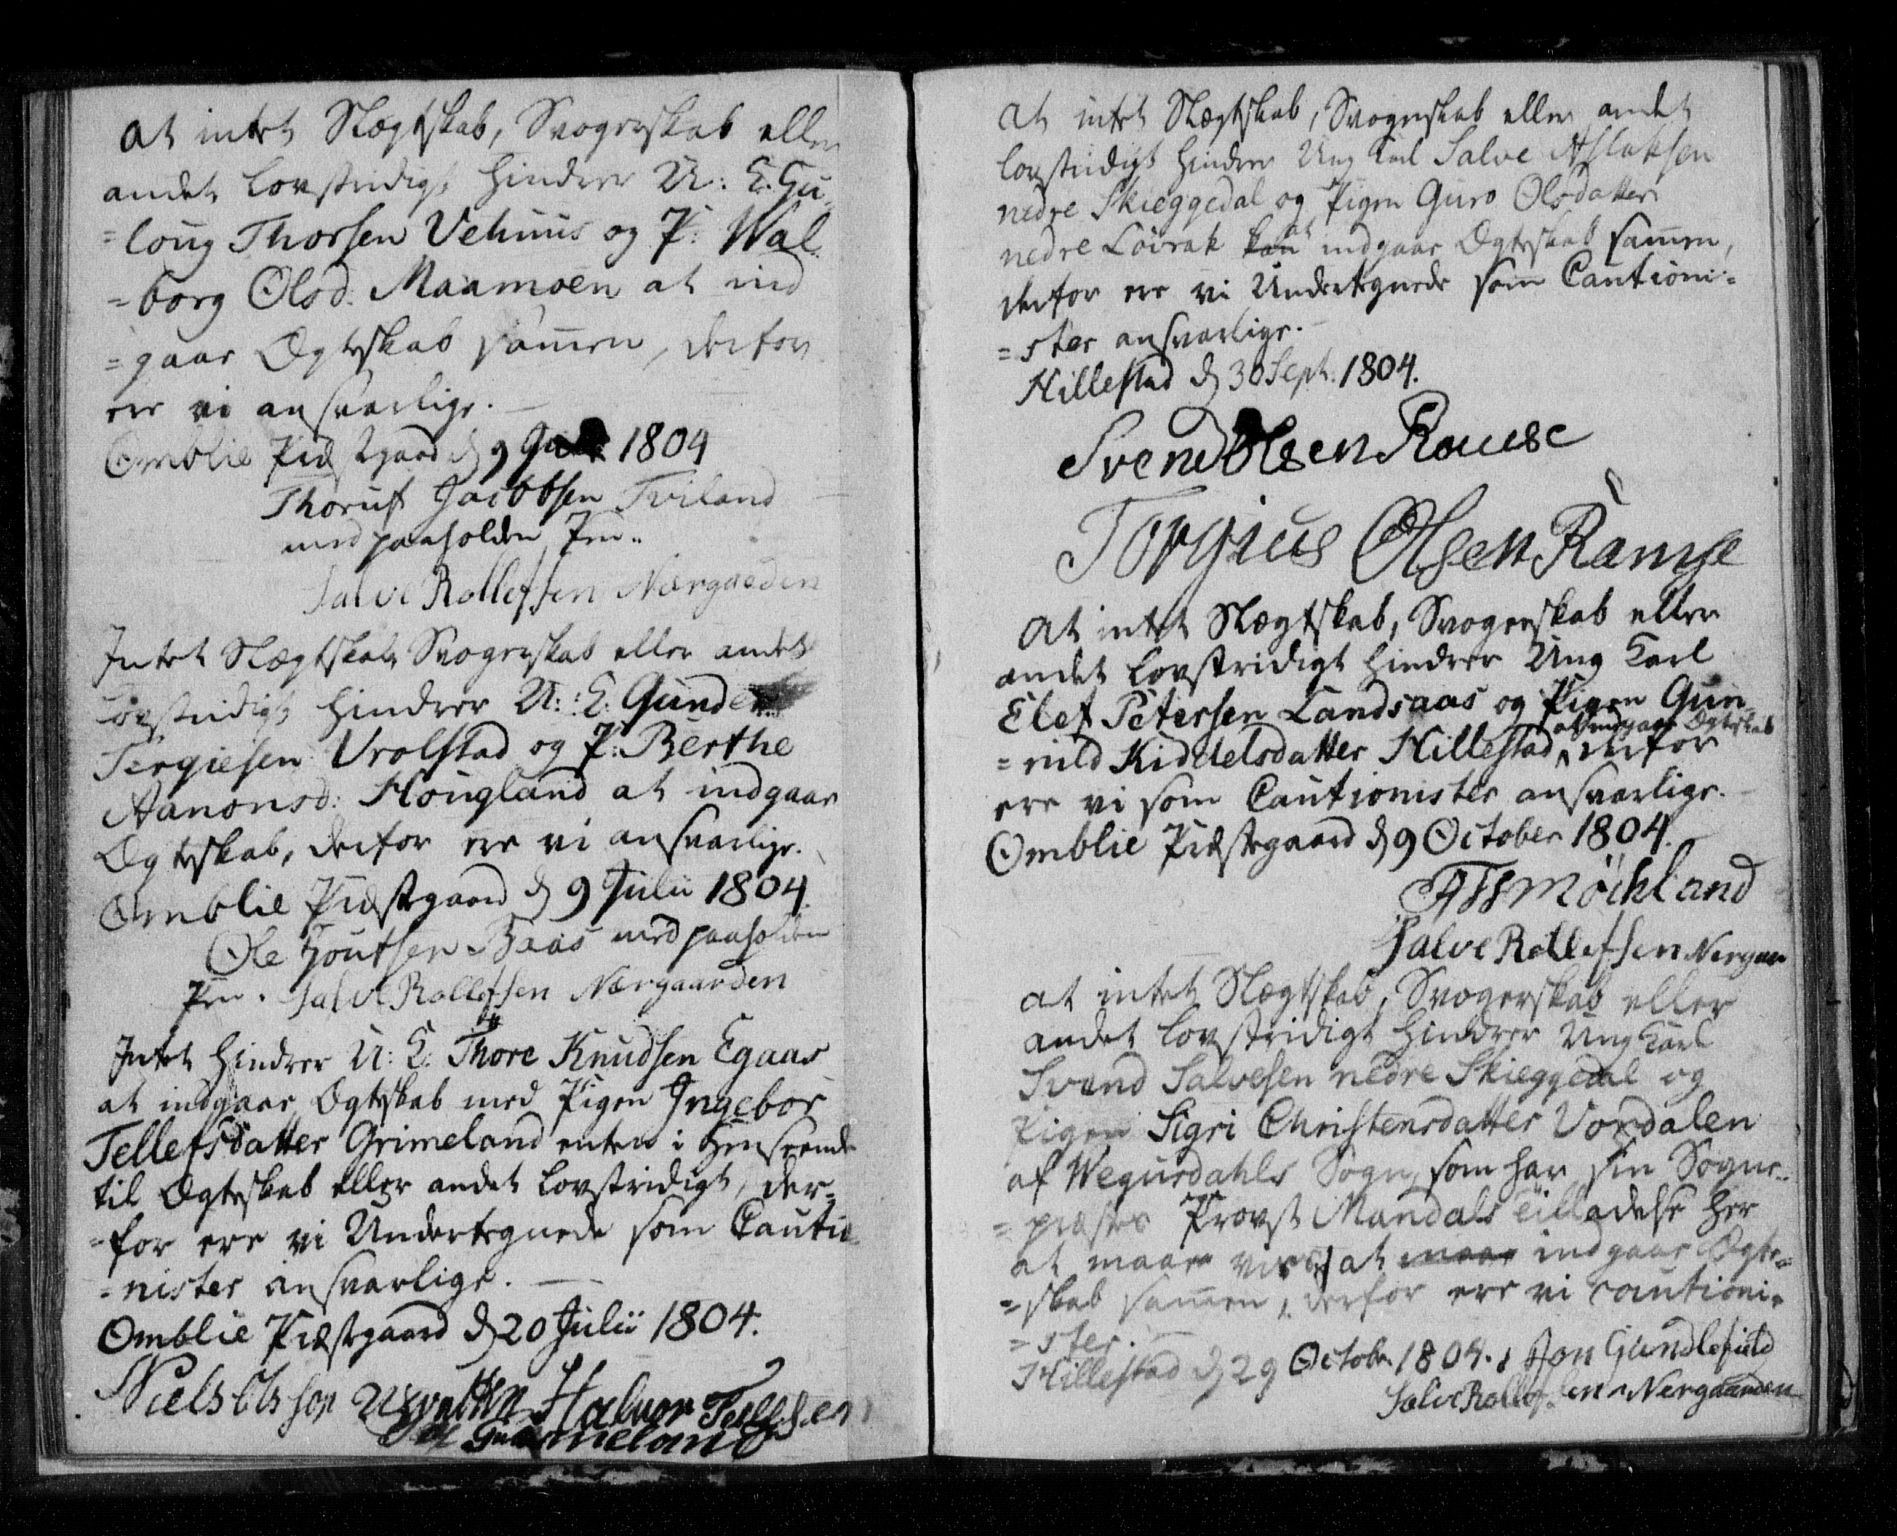 At intet Slægtskab, Svogerskab eller
andet lovstridigt hindrer U: K: Gu-
=loug Thorsen Vehuus og P: Wal-
=borg Olsd: Maamoen at ind
=gaae Ægteskab sammen, derfor
ere vi ansvarlige.
Omblie Præstgaard d 9 1804
Jacobsen Tviland
med paaholden Pen.
Salve Rollefsen Nærgaarden
Intet Slægtskab, Svogerskab eller andet
Lovstridigt hindrer U: K: Gunder
Tergiesen Vrolstad og P: Berthe
Aanonsd: Hougland at indgaae
Ægteskab, derfor ere vi ansvarlige.
Omblie Præstgaard d 9 Julii 1804.
Ole Goutsen Baas med paaholden
Pen. Salve Rollefsen Nærgaarden
Intet hindrer U: K: Thore Knudsen Egaas
at indgaae Ægteskab med Pigen Ingebor
Tellefsdatter Grimeland enten i Henseende
til Ægteskab eller andet lovstridigt, der-
=for ere vi Undertegnede som Cautio-
=nister ansvarlige.
Omblie Præstgaard d 20 Julii 1804.
Niels Halvor Tellefsen
Grimeland
At intet Slægtskab, Svogerskab eller andet
lovstridigt hindrer Ung Karl Salve Aslaksen
nedre Skieggedal og Pigen Guro Olsdatter
nedre Løvrak at indgaae Ægteskab sammen,
derfor ere vi Undertegnede som Cautioni-
=ster ansvarlige.
Hillestad d 30 Sept. 1804.
Svend Olsen Rause
Torgius Olsen Ramse
At intet Slægtskab, Svogerskab eller
andet lovstridigt hindrer Ung Karl
Elef Petersen Landsaas og Pigen Gun-
at indgaae Ægteskab
=nild Kiddelsdatter Hillestad, derfor
ere vi som Cautionister ansvarlige.
Omblie Præstegaard d 9 October 1804.
Salve Rollefsen Nergaar
At intet Slægtskab, Svogerskab eller
andet lovstridigt hindrer Ung Karl
Svend Salvesen nedre Skieggedal og
Pigen Sigri Christensdatter Vordalen
af Wegusdahls Sogn, som har sin Sogne-
=præstes Provst Mandals Tilladelse her
at maae vies, at maae indgaae Ægte-
=skab sammen, derfor ere vi cautioni-
=ster.
Hillestad d 29 Octobr. 1804. Jon
Salve Rollefsen Nergaarden